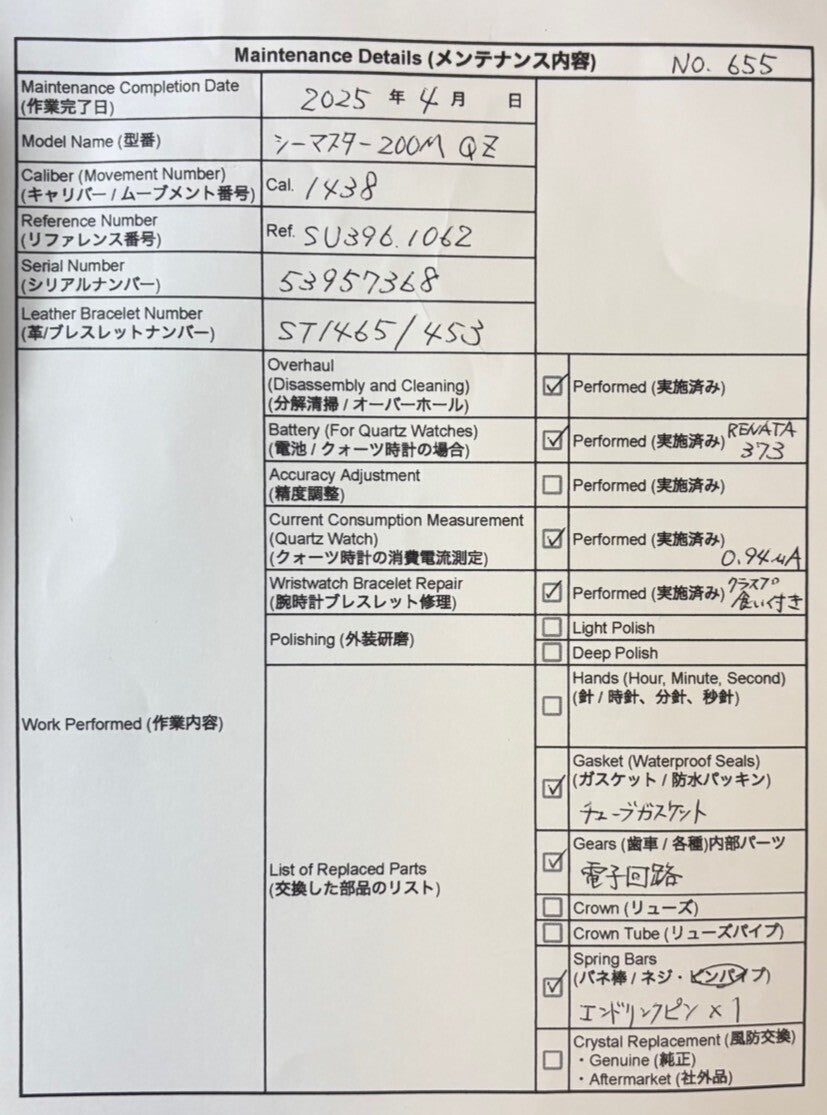 Maintenance Details (メンテナンス内容) NO. 655
Maintenance Completion Date
(作業完了日)
2025 年 4 月 日
Model Name (型番)
シーマスター200M QZ
Caliber (Movement Number)
(キャリバー / ムーブメント番号)
Cal. 1438
Reference Number
(リファレンス番号)
Ref. SU396.1062
Serial Number
(シリアルナンバー)
53957368
Leather Bracelet Number
(革/ブレスレットナンバー)
ST1465/453
Work Performed (作業内容)
Overhaul
(Disassembly and Cleaning)
(分解清掃 / オーバーホール)
☑ Performed (実施済み)
Battery (For Quartz Watches)
(電池 / クォーツ時計の場合)
☑ Performed (実施済み) RENATA
373
Accuracy Adjustment
(精度調整)
☐ Performed (実施済み)
Current Consumption Measurement
(Quartz Watch)
(クォーツ時計の消費電流測定)
☑ Performed (実施済み)
0.94μA
Wristwatch Bracelet Repair
(腕時計ブレスレット修理)
☑ Performed (実施済み) クラスプ
食い付き
Polishing (外装研磨)
☐ Light Polish
☐ Deep Polish
List of Replaced Parts
(交換した部品のリスト)
☐ Hands (Hour, Minute, Second)
(針 / 時針、分針、秒針)
☑ Gasket (Waterproof Seals)
(ガスケット / 防水パッキン)
チューブガスケット
☑ Gears (歯車 / 各種)内部パーツ
電子回路
☐ Crown (リューズ)
☐ Crown Tube (リューズパイプ)
☑ Spring Bars
(バネ棒 / ネジ・ピンパイプ)
エンドリンクピン × 1
☐ Crystal Replacement (風防交換)
・Genuine (純正)
・Aftermarket (社外品)